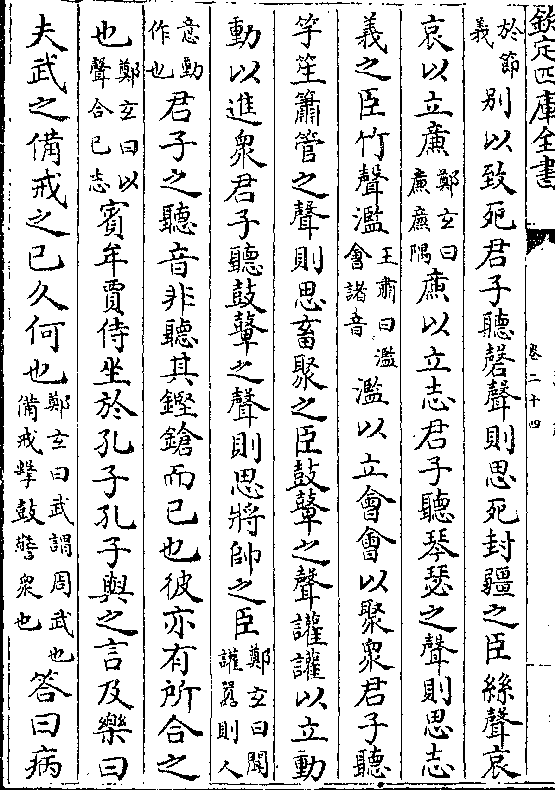 欽定四庫全書
卷二十四
於節義别以致死君子聽磬聲則思死封疆之臣絲聲哀
哀以立㢘鄭玄曰㢘㢘隅㢘以立志君子聽琴瑟之聲則思志
義之臣竹聲濫王肅曰濫會諸音濫以立會會以聚衆君子聽
竽笙簫管之聲則思畜聚之臣鼓鼙之聲讙讙以立動
動以進衆君子聽鼓鼙之聲則思將帥之臣鄭玄曰聞讙嚣則人
意動作也君子之聽音非聽其鏗鎗而已也彼亦有所合之
也鄭玄曰以聲合已志賓牟賈侍坐於孔子孔子與之言及樂曰
夫武之備戒之已久何也鄭玄曰武謂周武也備戒擊鼓警衆也答曰病